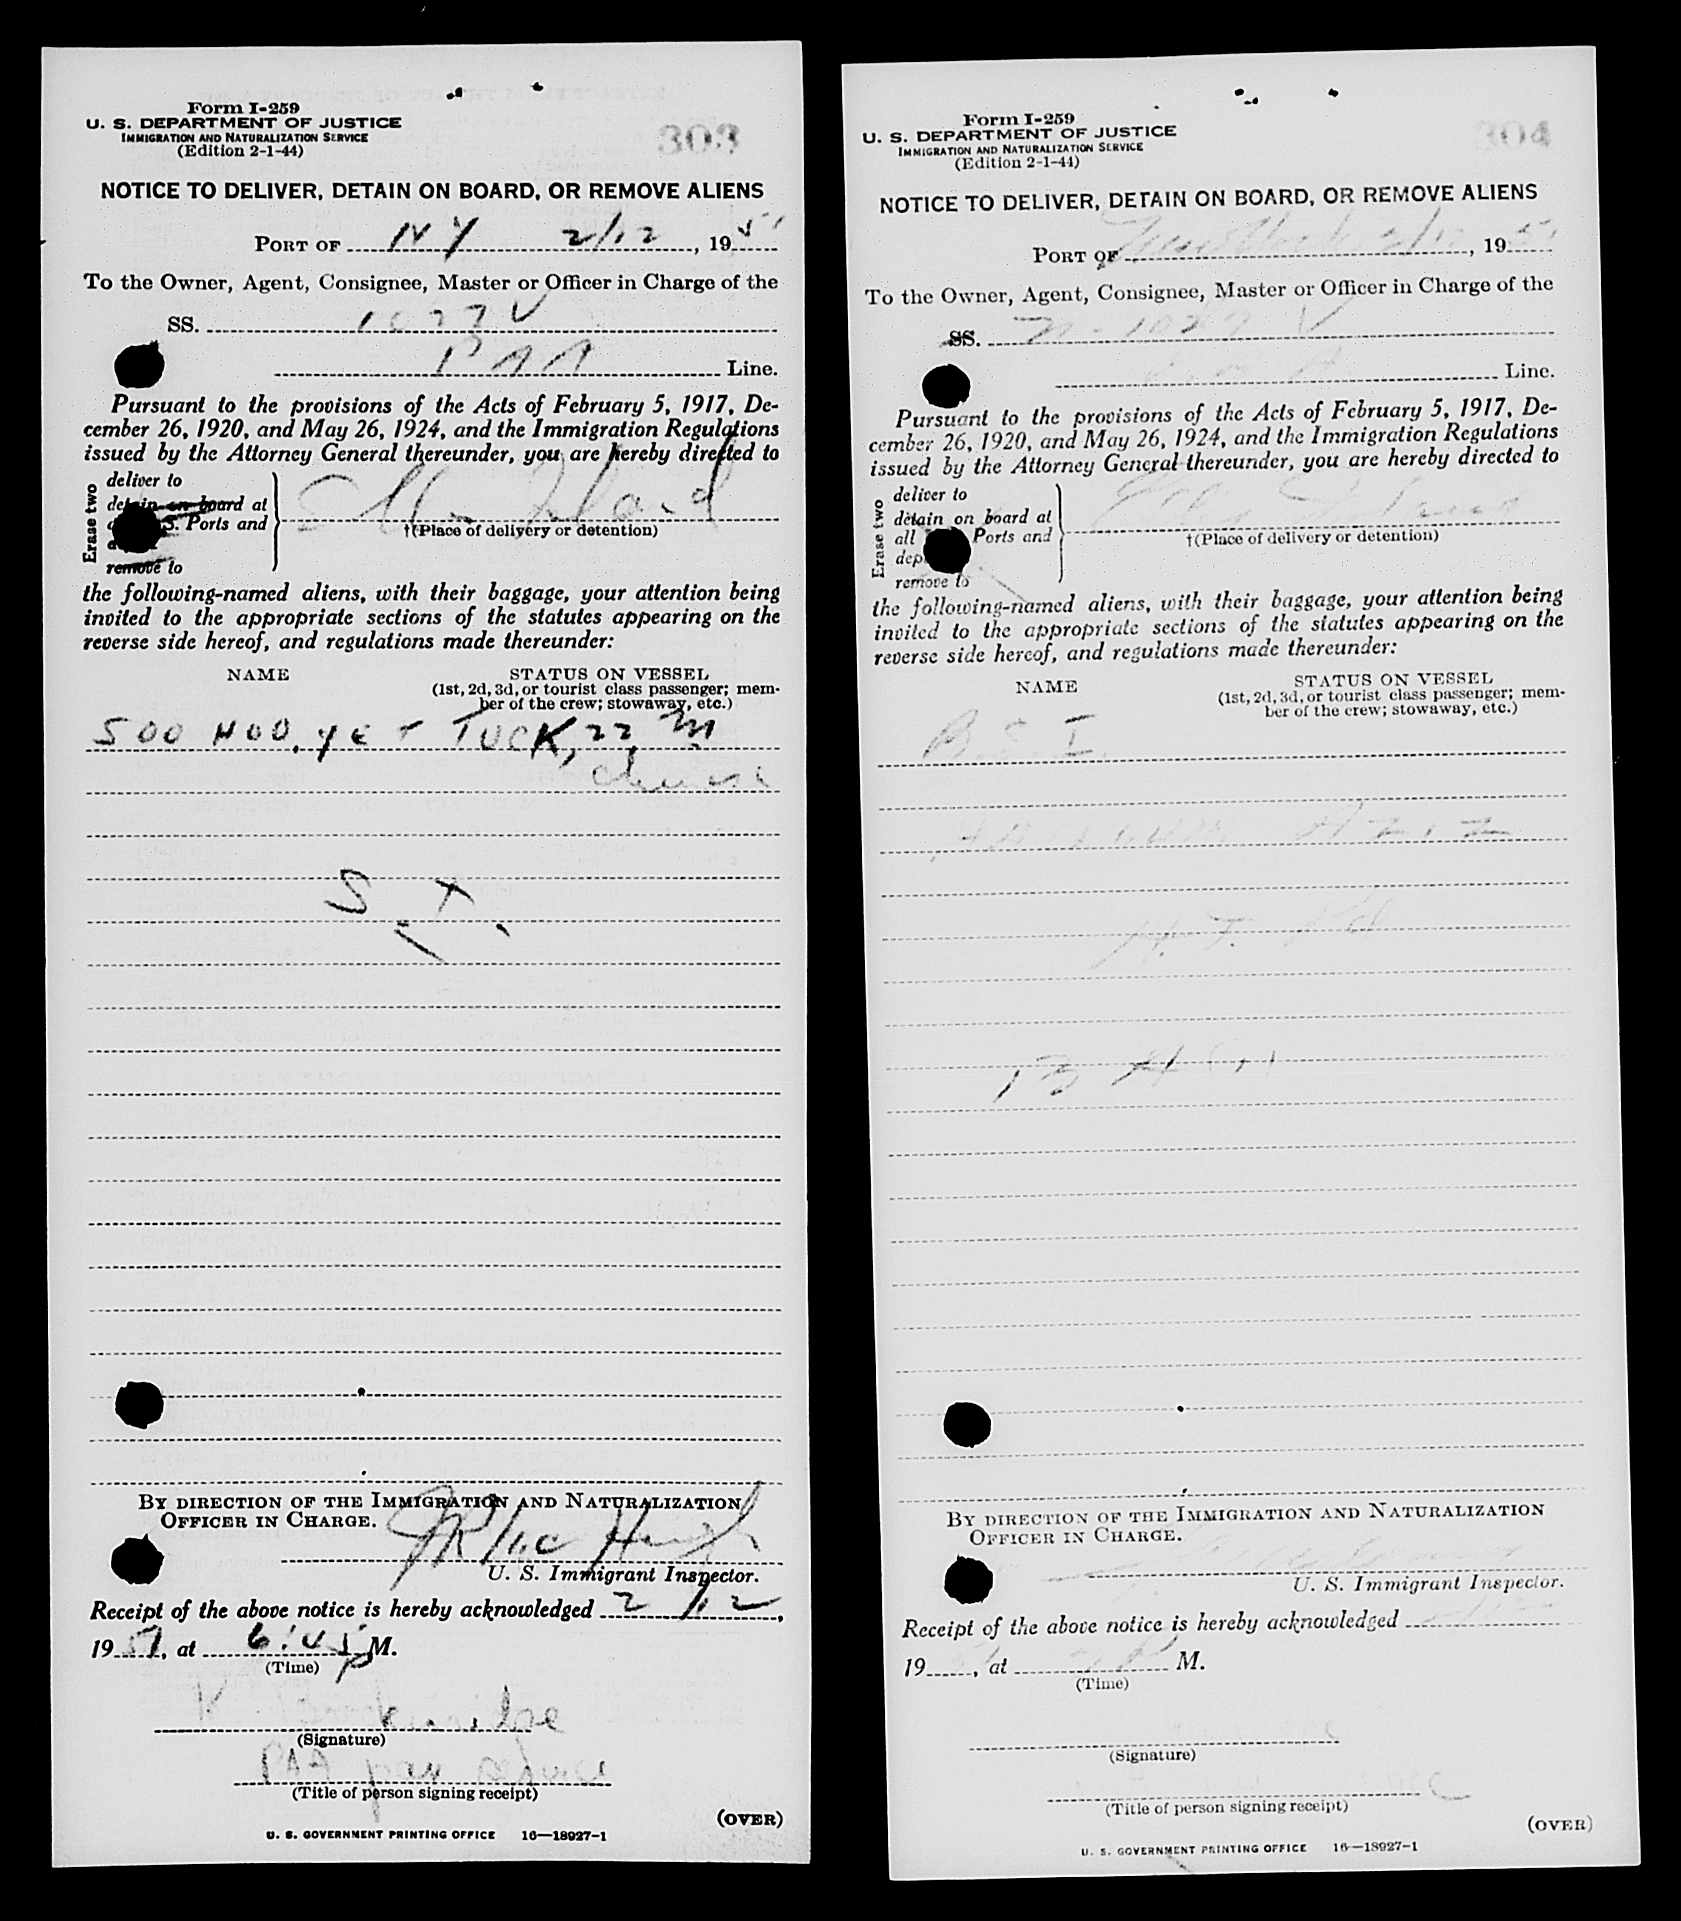 Form I-259
U. S. DEPARTMENT OF JUSTICE
IMMIGRATION AND NATURALIZATION SERVICE
(Edition 2-1-44)
303
NOTICE TO DELIVER, DETAIN ON BOARD, OR REMOVE ALIENS
PORT OF NY 2/12, 1951
To the Owner, Agent, Consignee, Master or Officer in Charge of the
SS. 1027 V
PAA Line.
Pursuant to the provisions of the Acts of February 5, 1917, De-
cember 26, 1920, and May 26, 1924, and the Immigration Regulations
issued by the Attorney General thereunder, you are hereby directed to
Erase two
deliver to
detain on board at
S. Ports and
remove to
Ellis Island
†(Place of delivery or detention)
the following-named aliens, with their baggage, your attention being
invited to the appropriate sections of the statutes appearing on the
reverse side hereof, and regulations made thereunder:
NAME
STATUS ON VESSEL
(1st, 2d, 3d, or tourist class passenger; mem-
ber of the crew; stowaway, etc.)
SOO HOO, YET TUCK, 22, M
Chinese
S. I.
BY DIRECTION OF THE IMMIGRATION AND NATURALIZATION
OFFICER IN CHARGE.
U. S. Immigrant Inspector.
Receipt of the above notice is hereby acknowledged 2/12,
1951, at 6:45 P M.
(Time)
(Signature)
PAA pax service
(Title of person signing receipt)
(OVER)
U. S. GOVERNMENT PRINTING OFFICE 16—18927-1
Form I-259
U. S. DEPARTMENT OF JUSTICE
IMMIGRATION AND NATURALIZATION SERVICE
(Edition 2-1-44)
304
NOTICE TO DELIVER, DETAIN ON BOARD, OR REMOVE ALIENS
PORT OF New York 2/12, 1951
To the Owner, Agent, Consignee, Master or Officer in Charge of the
SS. N-1027 V
Line.
Pursuant to the provisions of the Acts of February 5, 1917, De-
cember 26, 1920, and May 26, 1924, and the Immigration Regulations
issued by the Attorney General thereunder, you are hereby directed to
Erase two
deliver to
detain on board at
all Ports and
remove to
Ellis Island
†(Place of delivery or detention)
the following-named aliens, with their baggage, your attention being
invited to the appropriate sections of the statutes appearing on the
reverse side hereof, and regulations made thereunder:
NAME
STATUS ON VESSEL
(1st, 2d, 3d, or tourist class passenger; mem-
ber of the crew; stowaway, etc.)
B. S. I.
BY DIRECTION OF THE IMMIGRATION AND NATURALIZATION
OFFICER IN CHARGE.
U. S. Immigrant Inspector.
Receipt of the above notice is hereby acknowledged
19 , at M.
(Time)
(Signature)
(Title of person signing receipt)
(OVER)
U. S. GOVERNMENT PRINTING OFFICE 16—18927-1